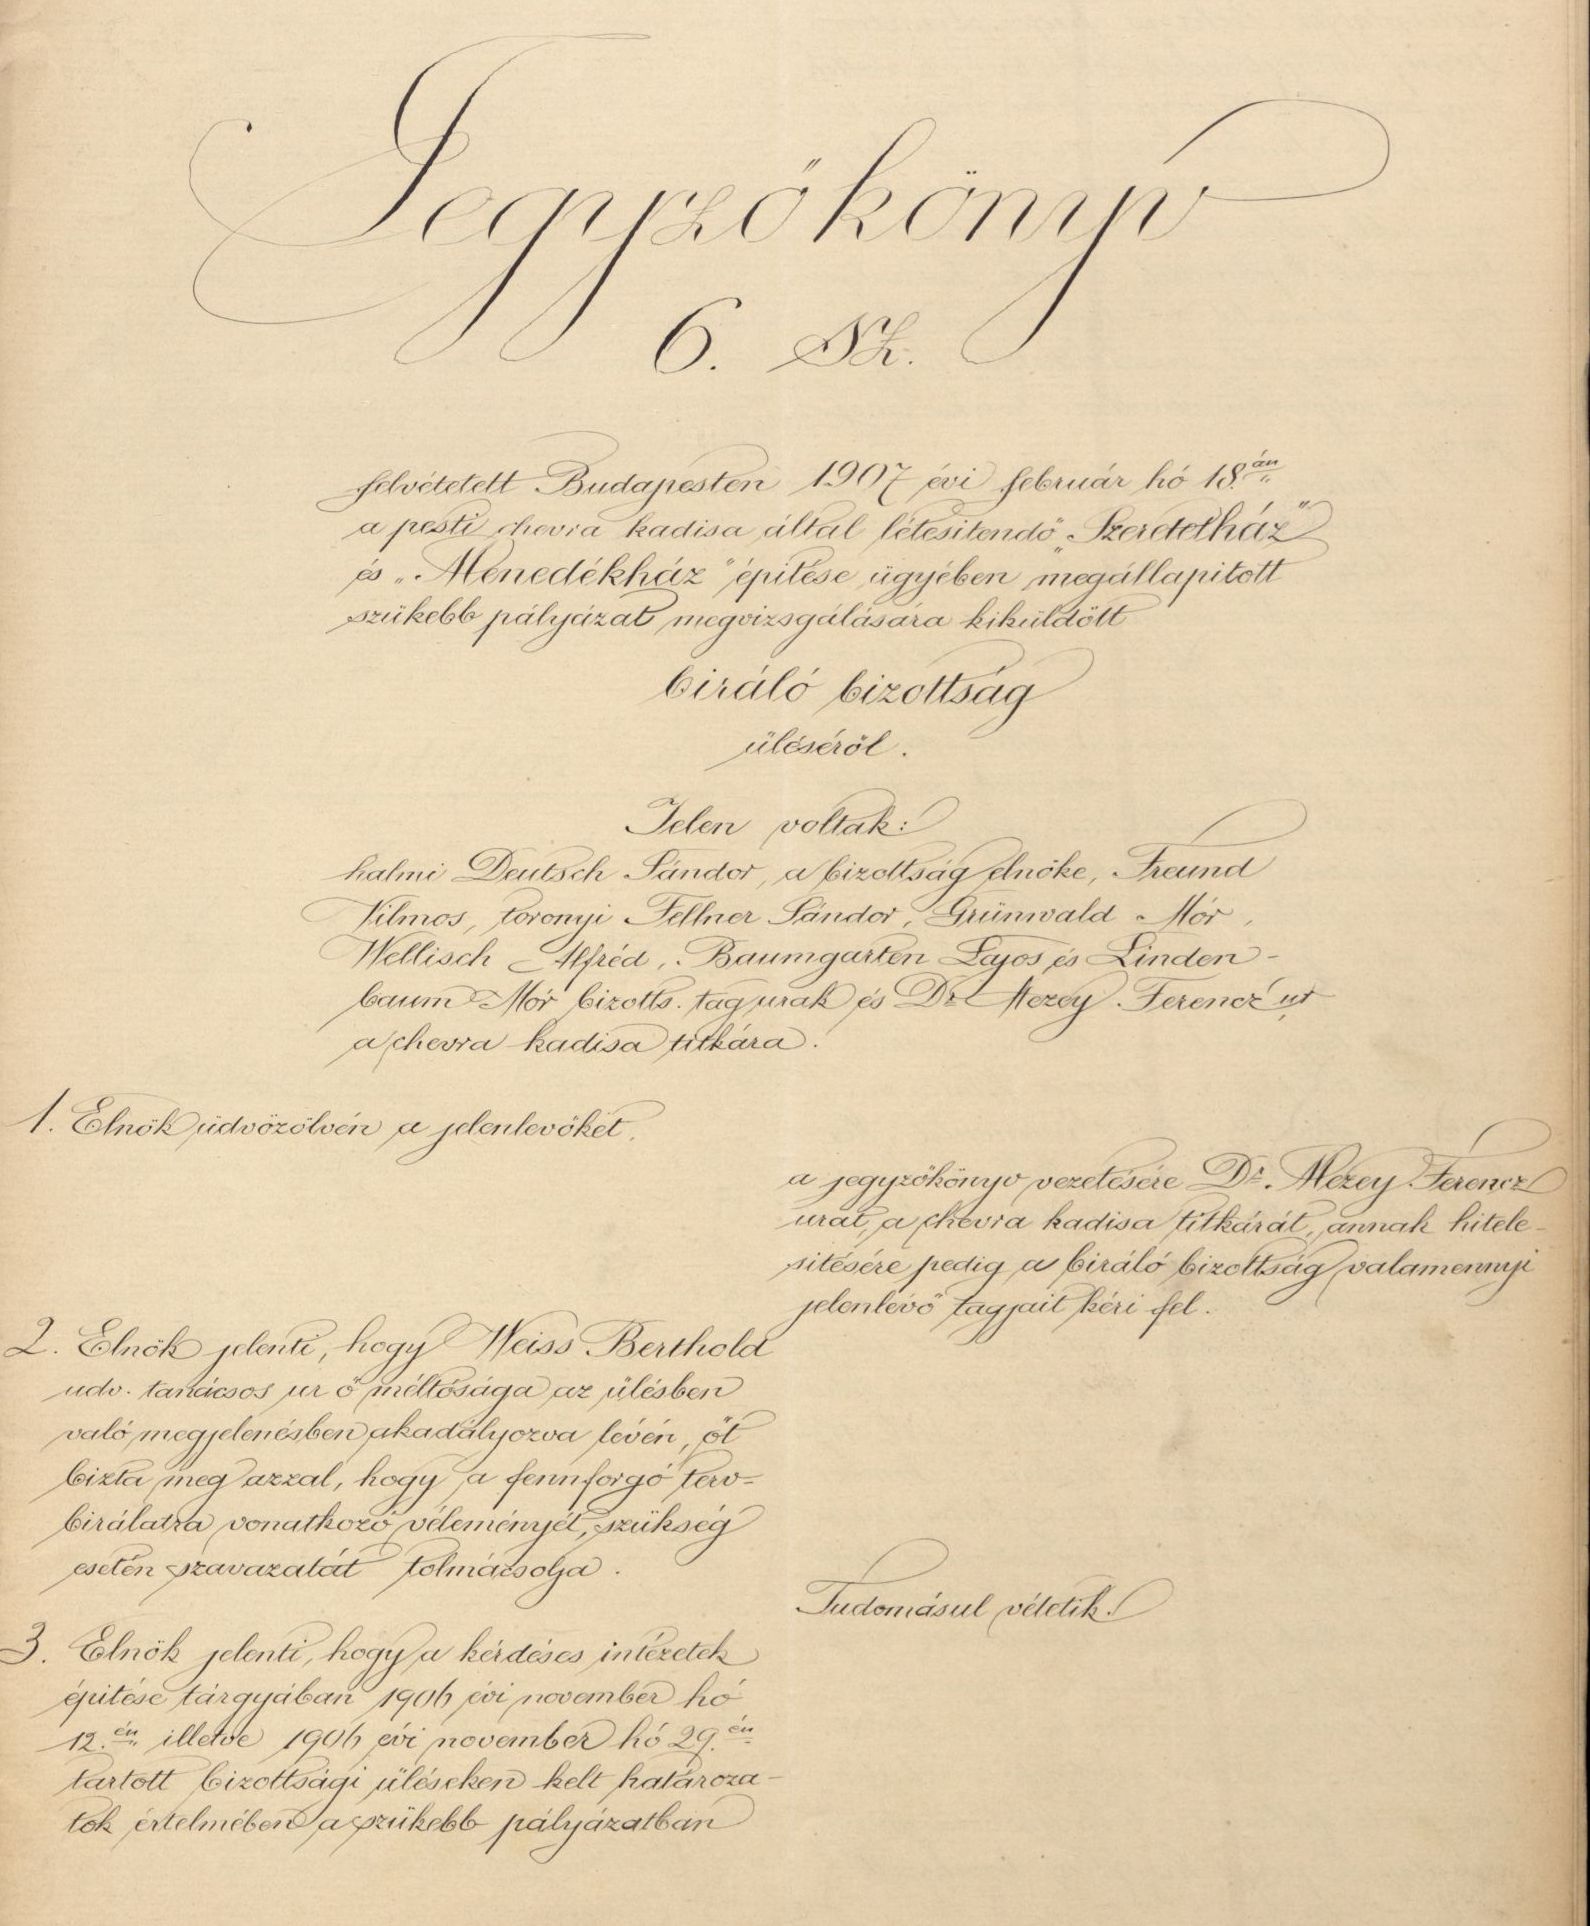 Jegyzőkönyv
6. Sz.
felvétetett Budapesten 1907 évi február hó 18.án
a pesti chevra kadisa által létesitendő „Szeretetház"
és „Menedékház" épitése ügyében megállapitott
szükebb pályázat megvizsgálására kiküldött
biráló bizottság
üléséről.
Jelen voltak:
halmi Deutsch Sándor, a bizottság elnöke, Freund
Vilmos, toronyi Fellner Sándor, Grünwald Mór,
Wellisch Alfréd, Baumgarten Lajos és Linden-
baum Mór bizotts. tag urak és Dr Mezey Ferencz ur
a chevra kadisa titkára.
1. Elnök üdvözölvén a jelenlevőket,
a jegyzőkönyv vezetésére Dr. Mezey Ferencz
urat, a chevra kadisa titkárát, annak hitele-
sitésére pedig a biráló bizottság valamennyi
jelenlévő tagjait kéri fel.
2. Elnök jelenti, hogy Weiss Berthold
udv. tanácsos ur ő méltósága az ülésben
való megjelenésben akadályozva lévén, őt
bizta meg azzal, hogy a fennforgó terv-
birálatra vonatkozó véleményét, szükség
esetén szavazatát tolmácsolja.
Tudomásul vétetik.
3. Elnök jelenti, hogy a kérdéses intézetek
épitése tárgyában 1906 évi november hó
12.én illetve 1906 évi november hó 29.én
tartott bizottsági üléseken kelt határoza-
tok értelmében a szükebb pályázatban